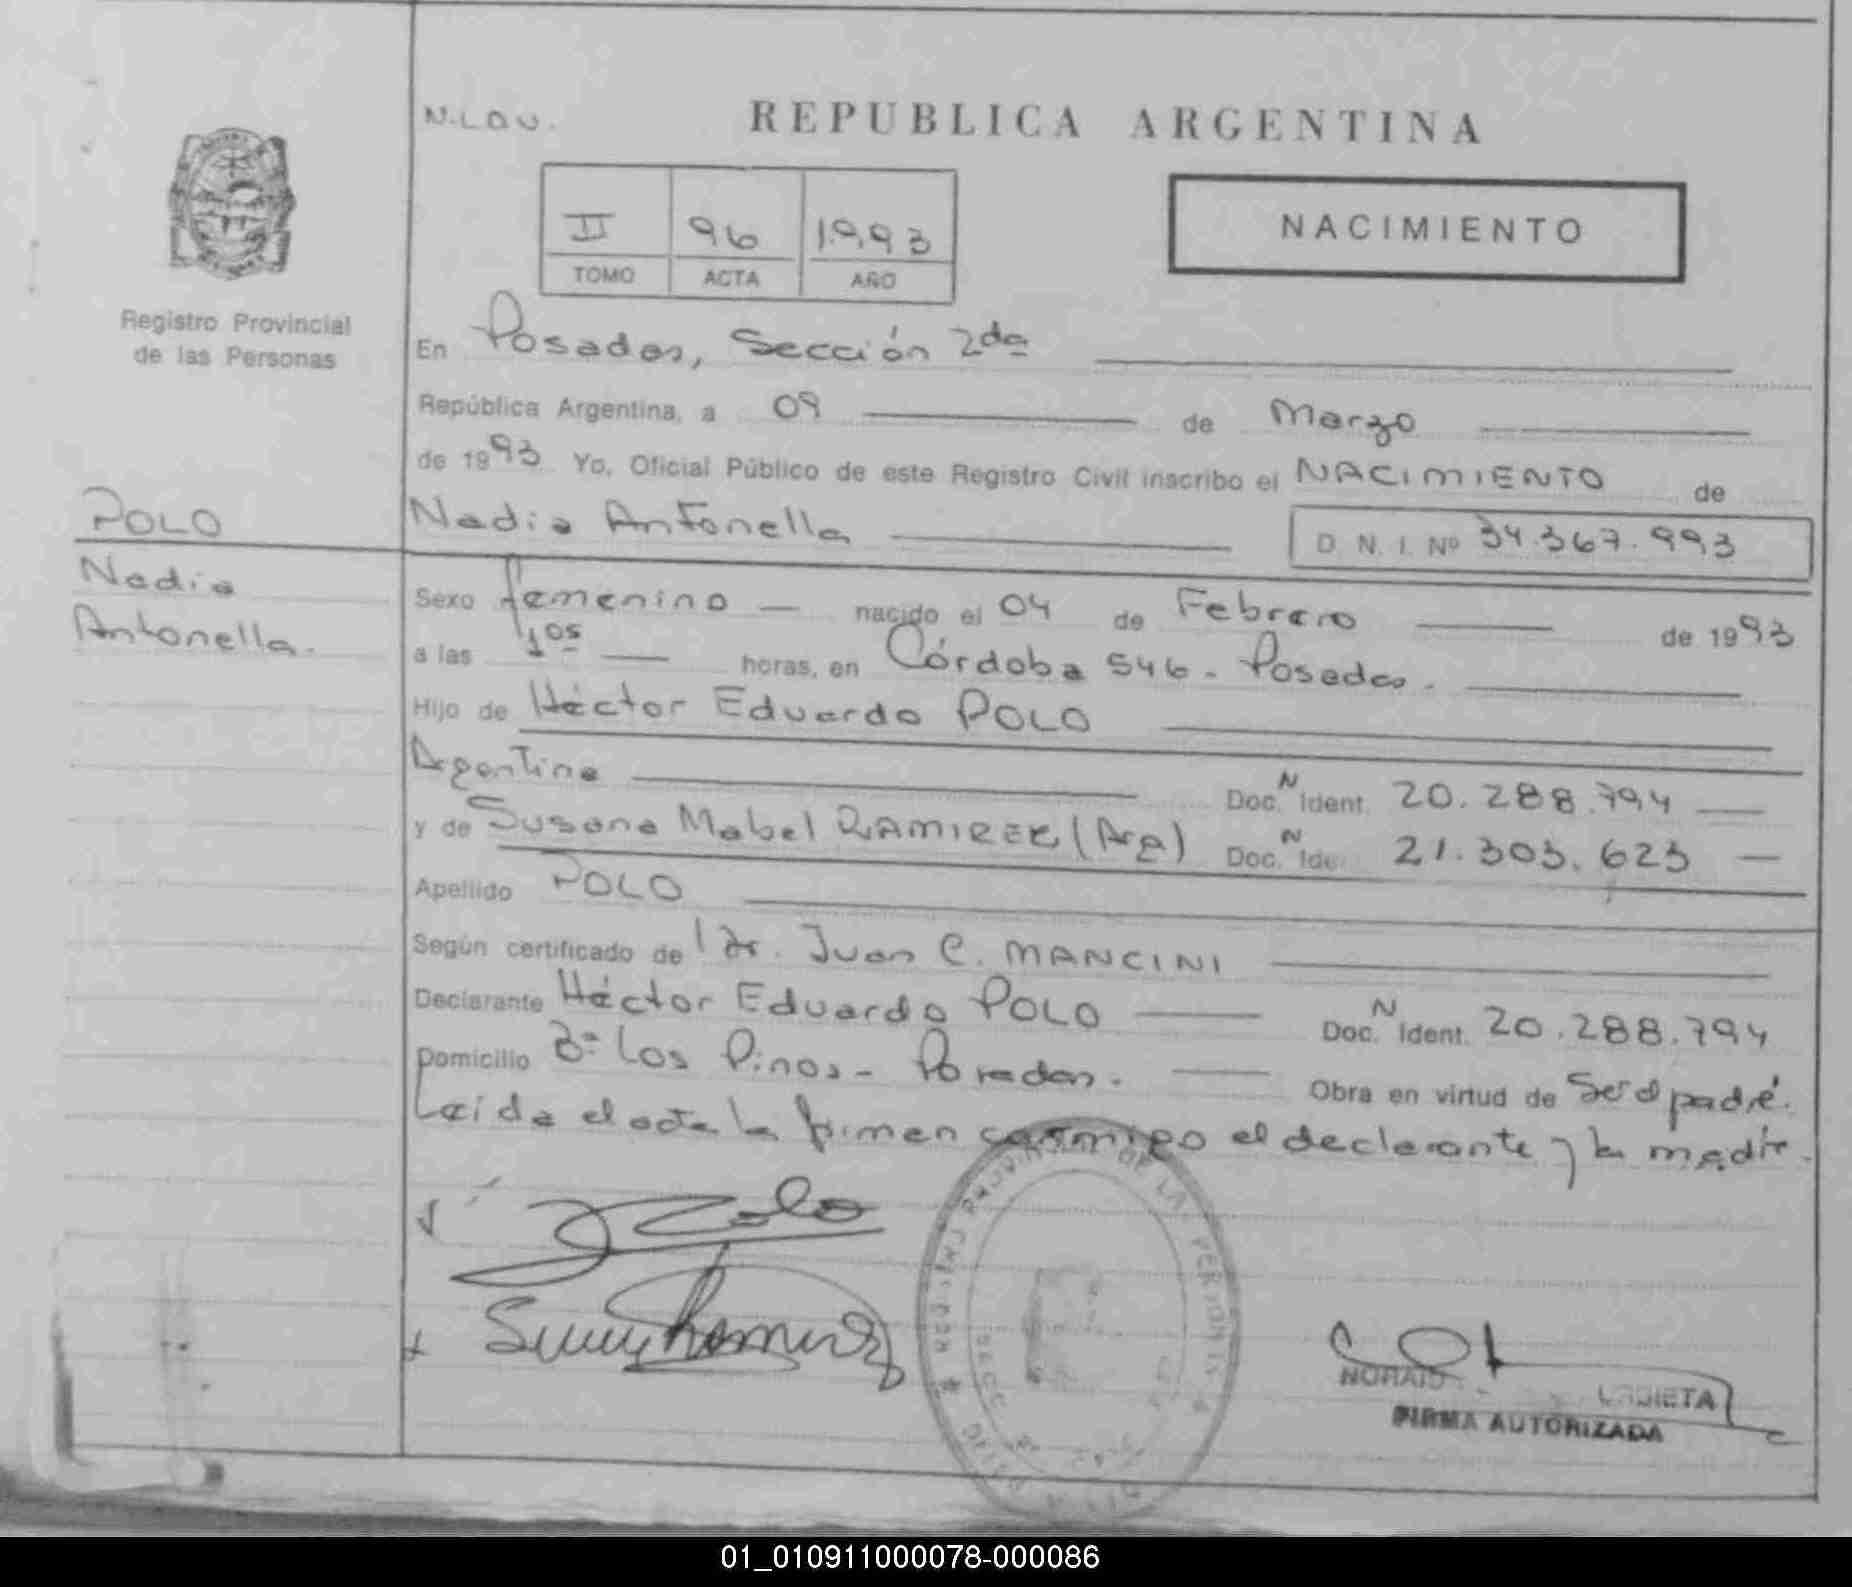 N.LOV.
REPUBLICA ARGENTINA
II 96 1.993
TOMO ACTA AÑO
NACIMIENTO
Registro Provincial
de las Personas
En Posadas, Sección 2da
República Argentina, a 09 de Marzo
de 1993 Yo, Oficial Público de este Registro Civil inscribo el NACIMIENTO de
POLO
Nadia Antonella D. N. I. Nº 34.367.993
Nadia
Antonella.
Sexo femenino — nacido el 04 de Febrero de 1993
a las 1os — horas, en Córdoba 546 - Posadas.
Hijo de Héctor Eduardo POLO
Argentina Doc. N Ident. 20.288.794
y de Susana Mabel RAMIREZ (Arg) Doc. N Ide 21.303.623
Apellido POLO
Según certificado de Dr. Juan C. MANCINI
Declarante Héctor Eduardo POLO Doc. N Ident. 20.288.794
Domicilio Bº Los Pinos - Posadas. Obra en virtud de Ser el padre.
Leída el acta la firman conmigo el declarante y la madre.
Polo
Ramirez
FIRMA AUTORIZADA
01_010911000078-000086